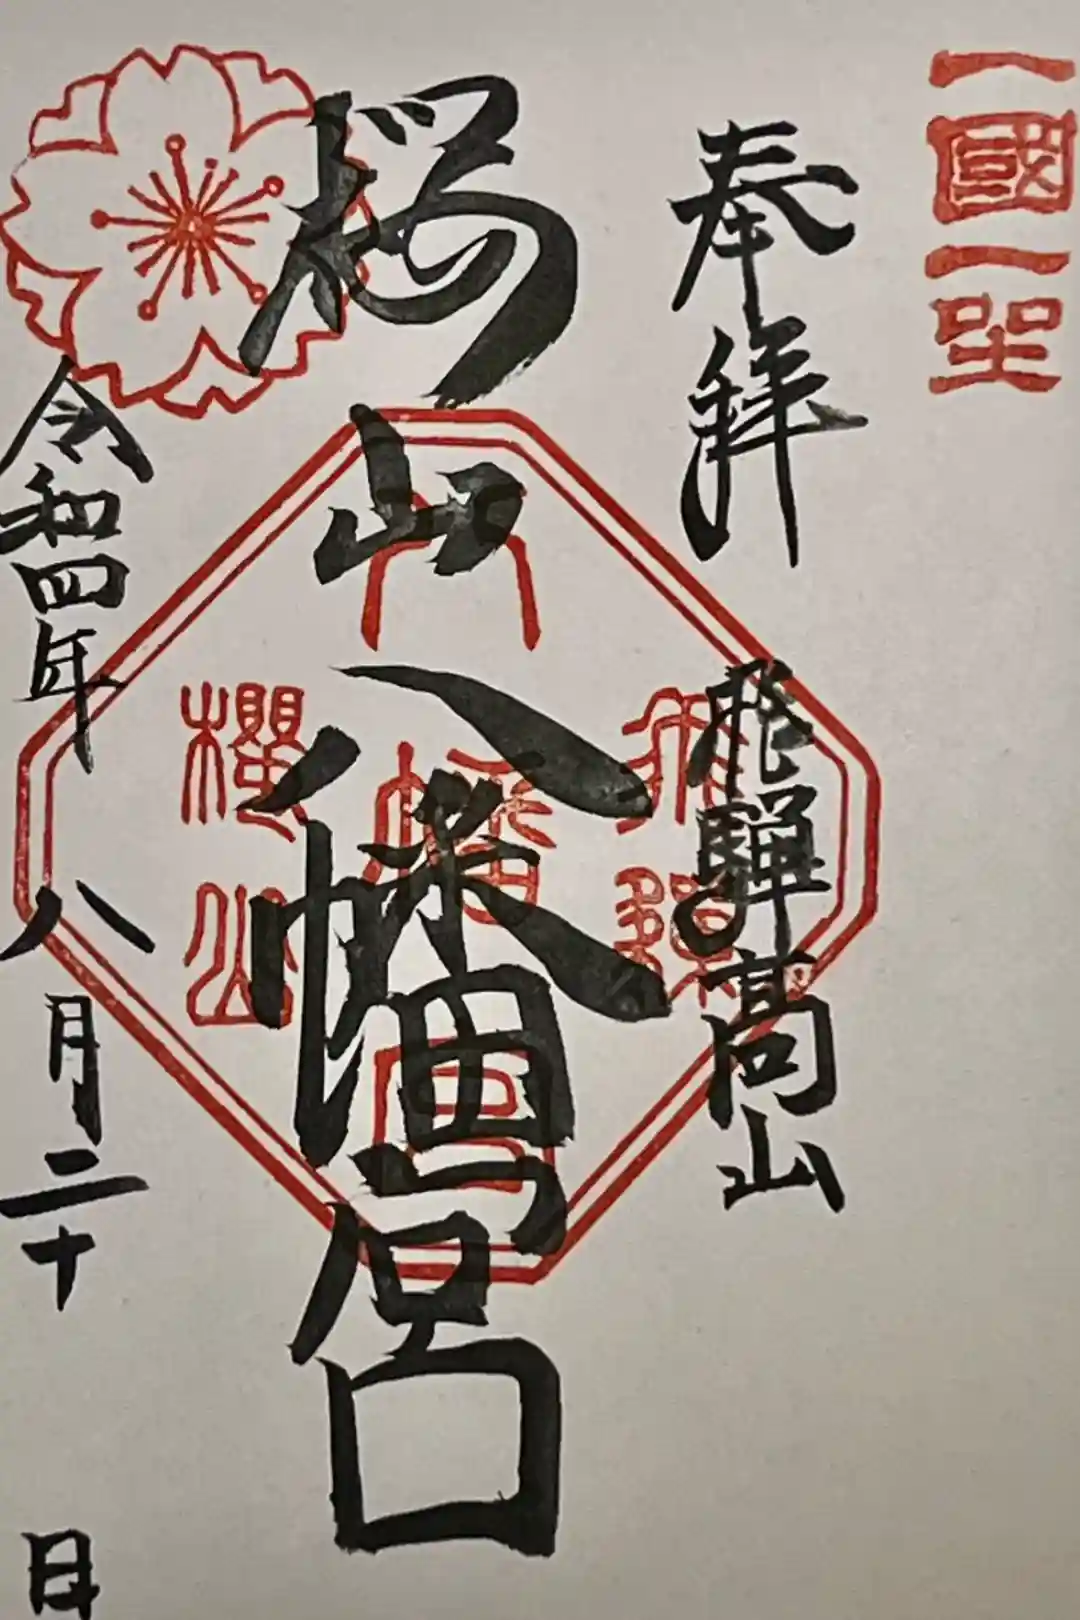 一國一坐
奉拝
飛騨高山
桜山八幡宮
飛騨
八幡宮
櫻山
令和四年八月二十日